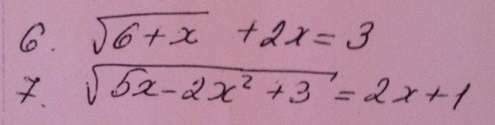 6. √(6+x) +2x=3
7. √(5x-2x²+3) =2x+1